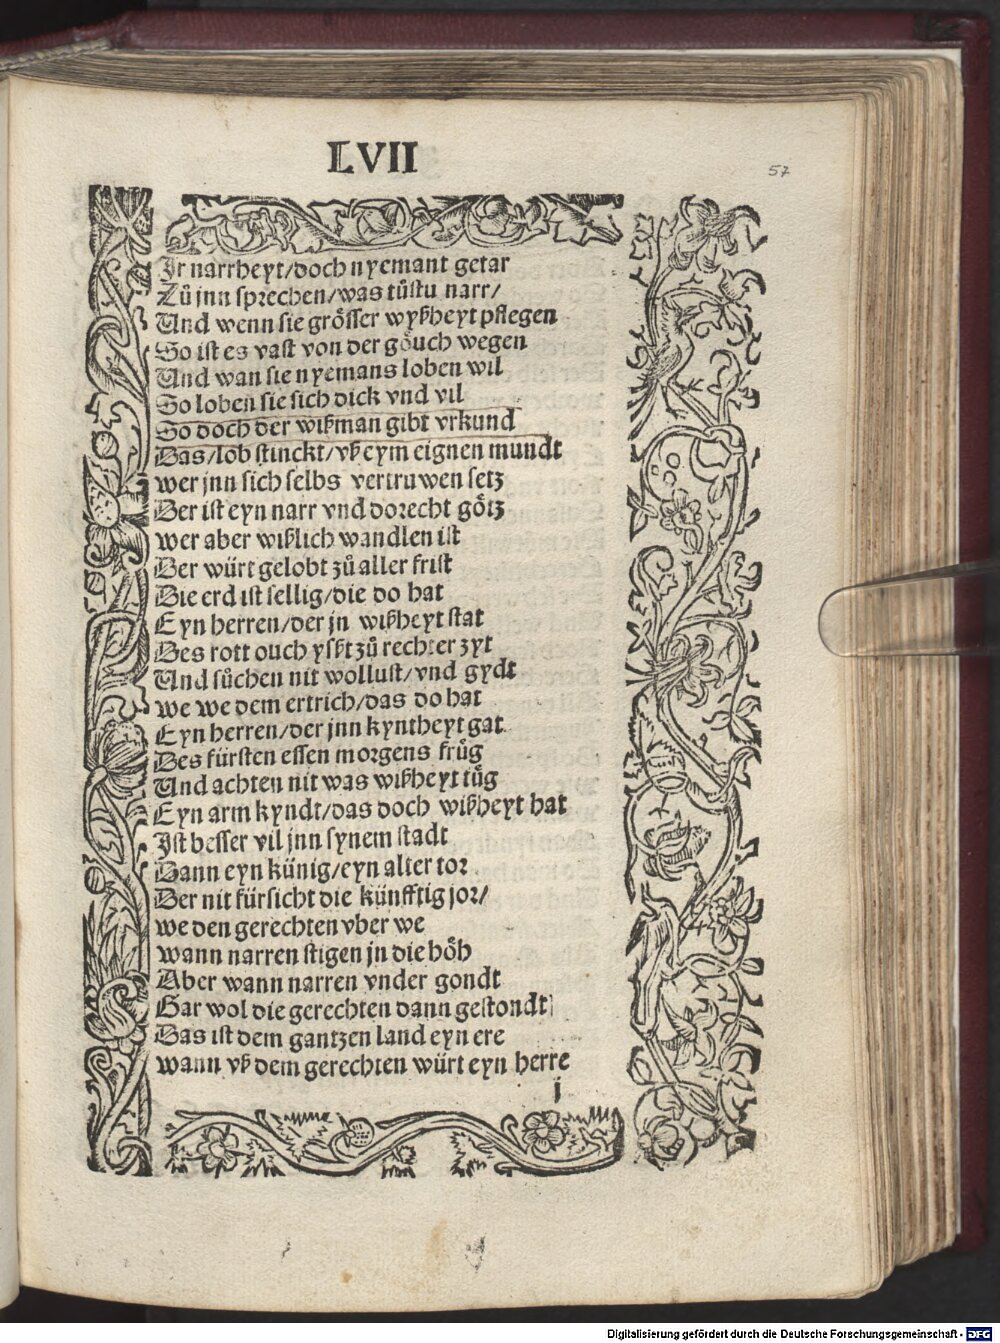 LVII
57
Ir narrheyt/doch nyemant getar
Zů jnn sprechen/was tůstu narr/
Und wenn sie grösser wyßheyt pflegen
So ist es vast von der göuch wegen
Und wan sie nyemans loben wil
So loben sie sich dick vnd vil
So doch der wißman gibt vrkund
Das/lob stinckt/vß eym eignen mundt
wer jnn sich selbs vertruwen setz
Der ist eyn narr vnd dorecht götz
wer aber wißlich wandlen ist
Der würt gelobt zů aller frist
Die erd ist sellig/die do hat
Eyn herren/der jn wißheyt stat
Des rott ouch yßt zů rechter zyt
Und sůchen nit wollust/vnd gydt
we we dem ertrich/das do hat
Eyn herren/der jnn kyntheyt gat
Des fürsten essen morgens frůg
Und achten nit was wißheyt tůg
Eyn arm kyndt/das doch wißheyt hat
Ist besser vil jnn synem stadt
Dann eyn künig/eyn alter tor
Der nit fürsicht die künfftig jor/
we den gerechten vber we
wann narren stigen jn die höh
Aber wann narren vnder gondt
Gar wol die gerechten dann gestondt
Das ist dem gantzen land eyn ere
wann vß dem gerechten würt eyn herre
i
Digitalisierung gefördert durch die Deutsche Forschungsgemeinschaft - DFG